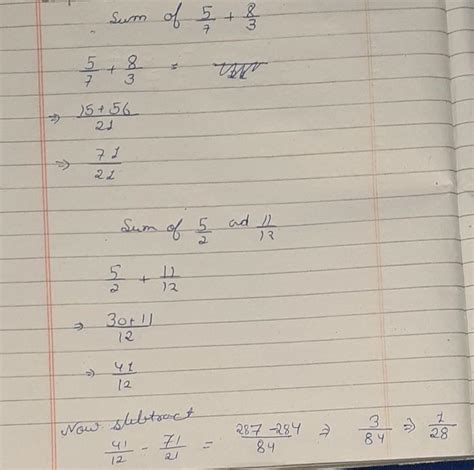 Sum of 5/7 + 8/3
5/7 + 8/3 =
⇒ 15+56/21
⇒ 71/21
Sum of 5/2 ad 11/12
5/2 + 11/12
⇒ 30+11/12
⇒ 41/12
Now subtract
41/12 - 71/21 = 287-284/84 ⇒ 3/84 ⇒ 1/28